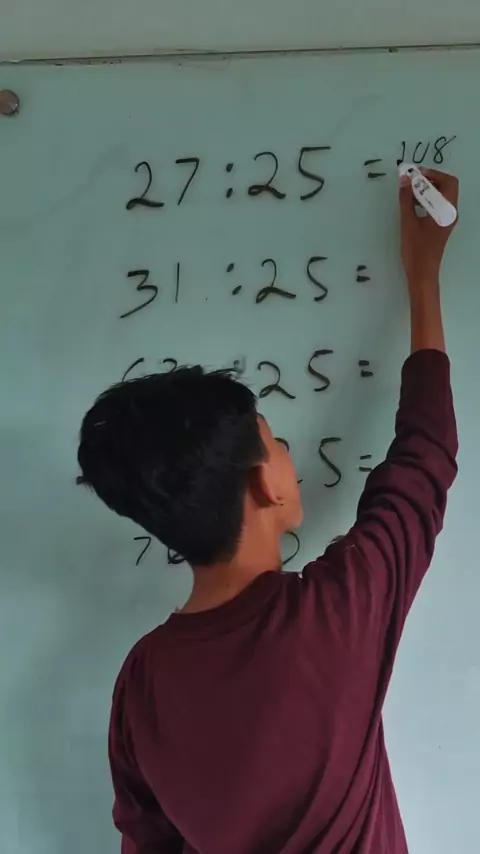 27 : 25 = 108
31 : 25 =
: 25 =
25 =
7